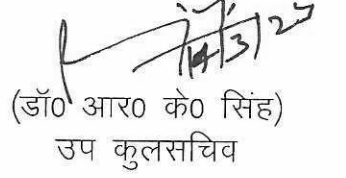 14/3/25
(डॉ0 आर0 के0 सिंह)
उप कुलसचिव